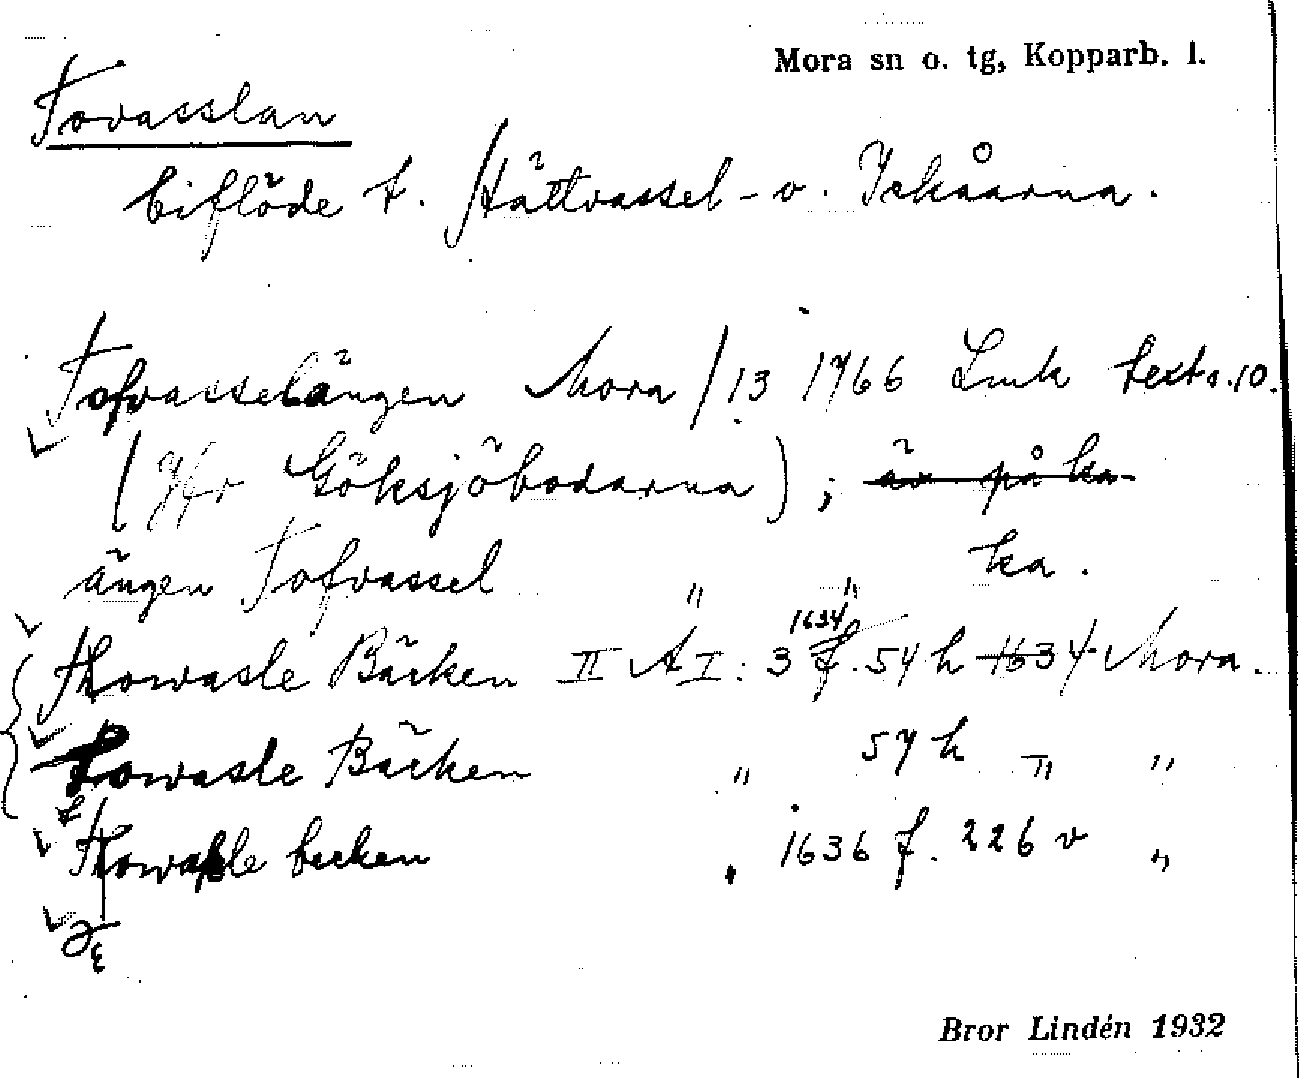 Mora sn o. tg, Kopparb. l.
Tovasslan
biflöde t. Hättvassel- o. Ickåarna.
Tofvasselängen Mora /13 1766 Lmk text s.10.
(Jfr Göksjöbodarna); är på ka
ängen Tofvassel " " ka.
Thowasle Bäcken II A I: 3 1634 f. 54 h 1634 Mora.
Towasle Bäcken " 57 h " "
Thowassle becken " 1636 f. 226 v "
Bror Lindén 1932